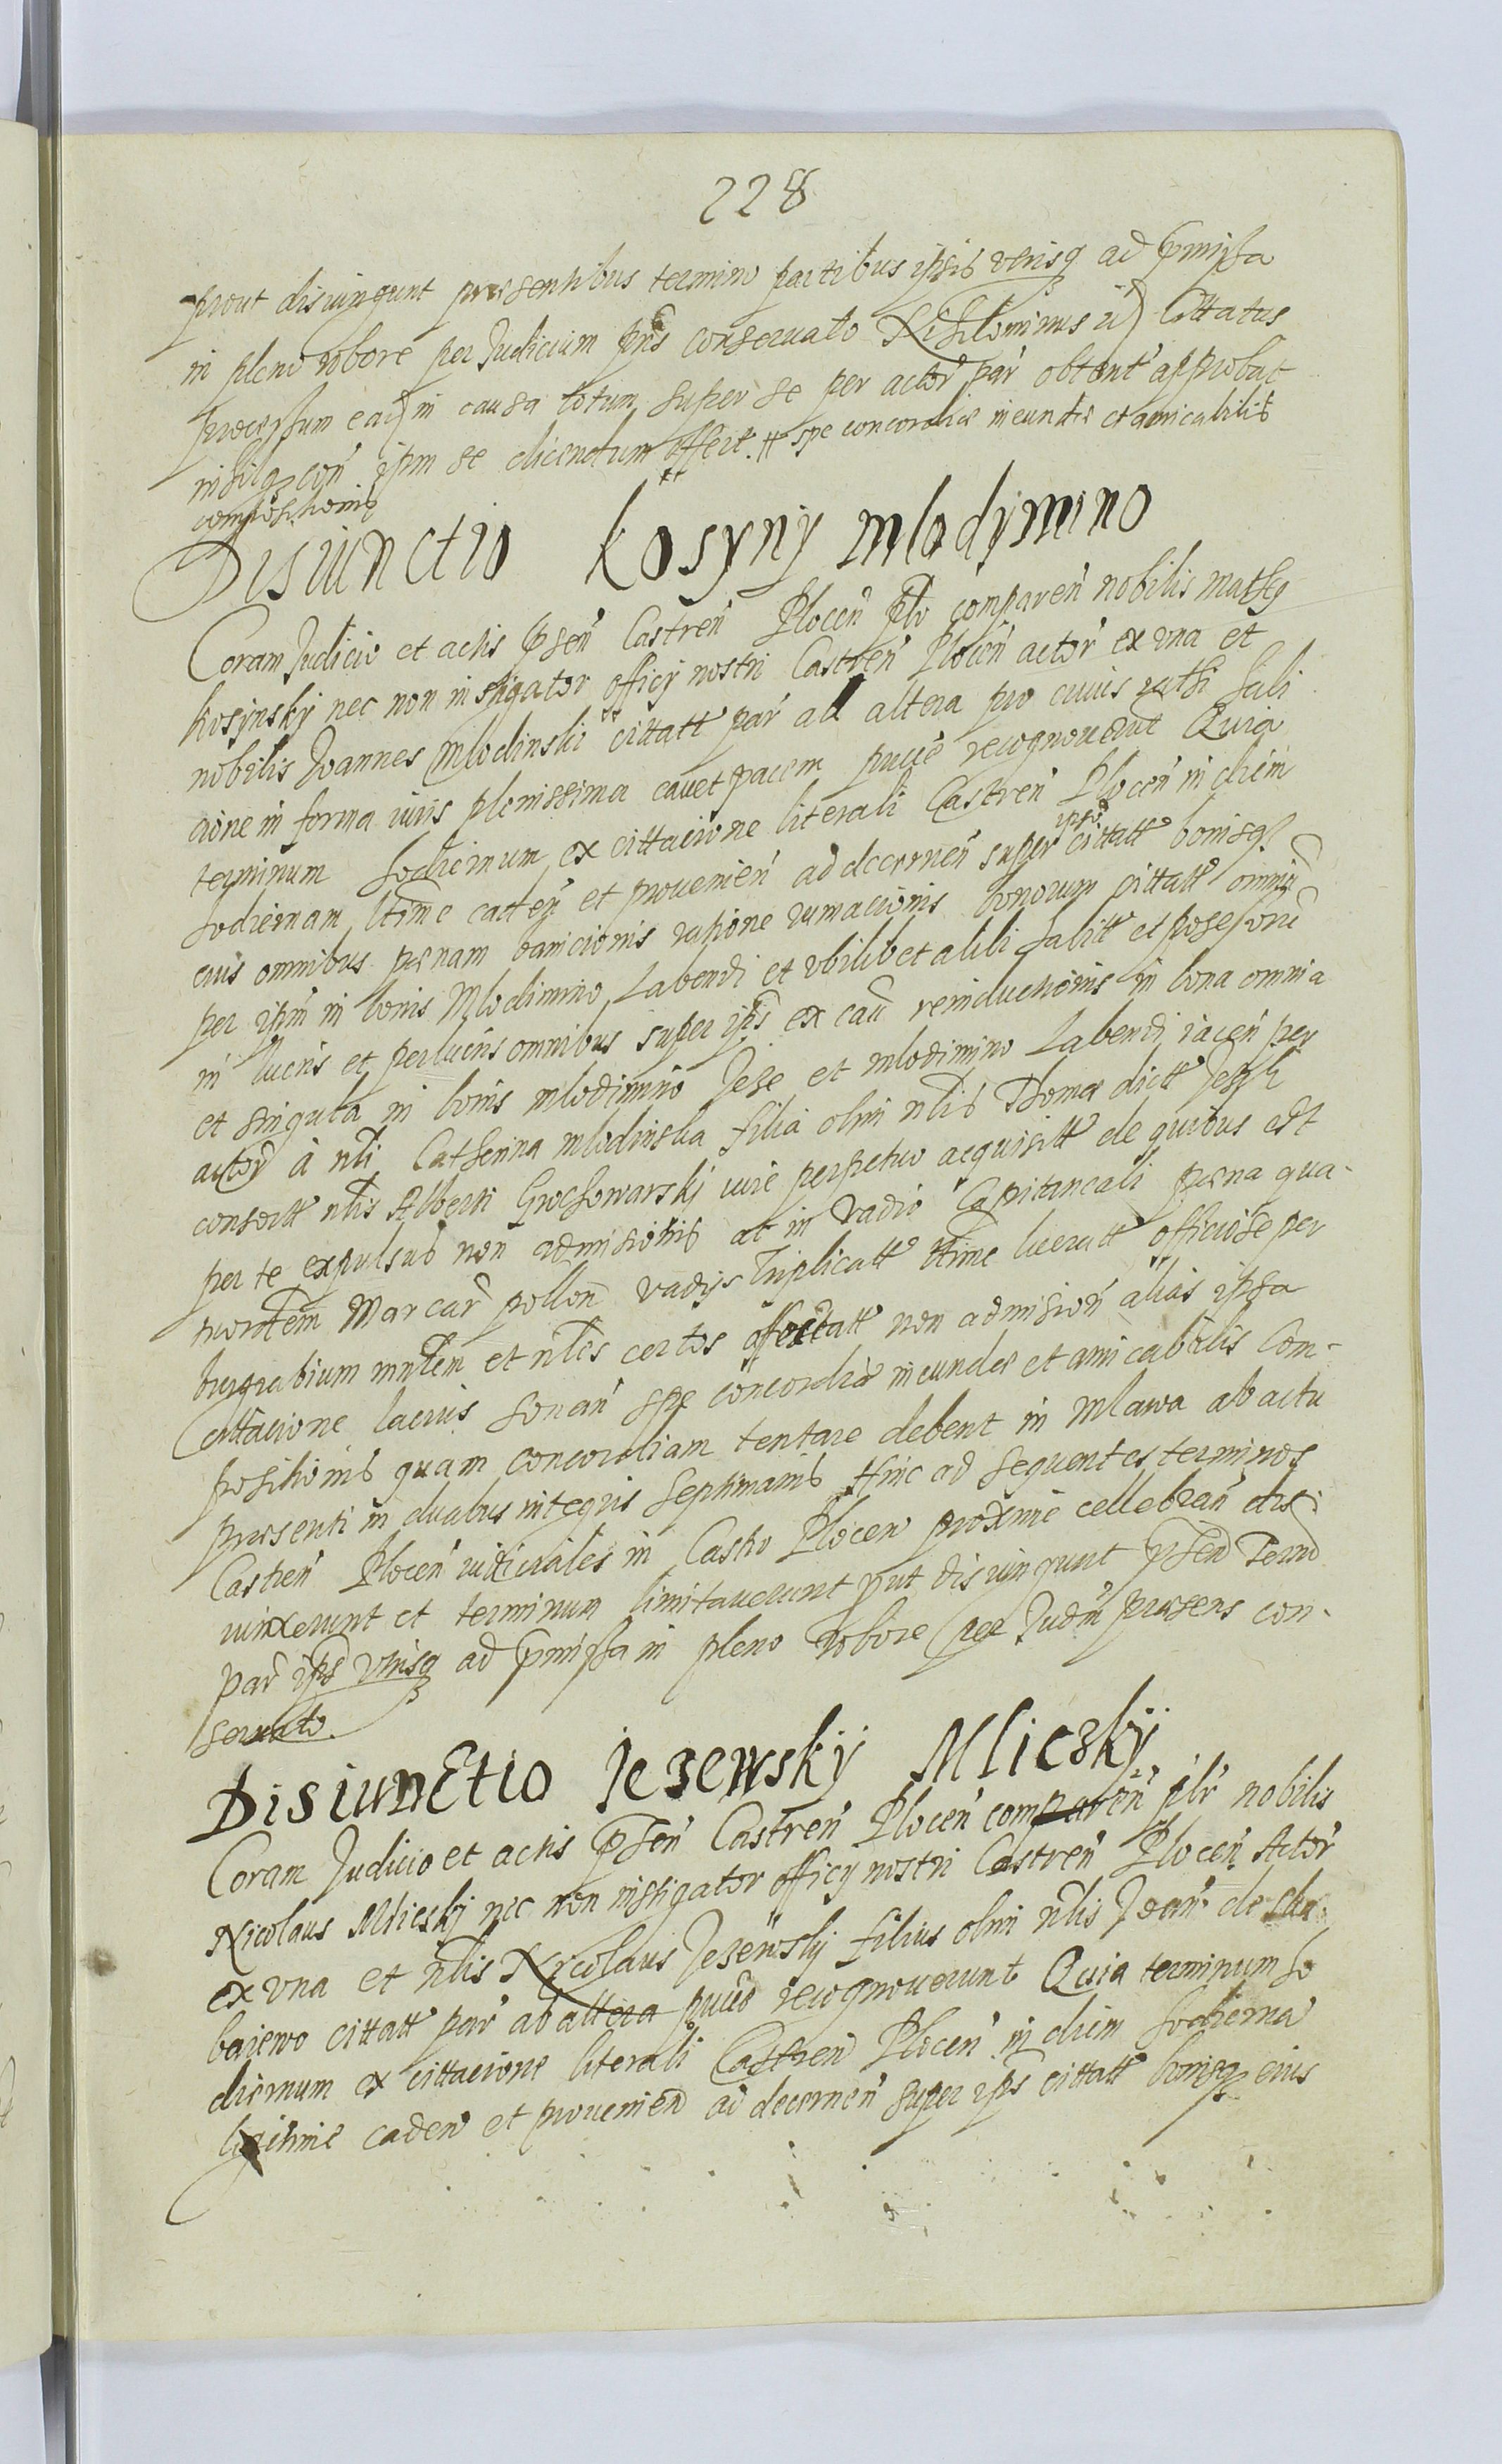 228
prout disiungunt praesentibus termino partibus ipsis vtrisq ad pmissa
in pleno robore per Judicium pns conseruato Nihilominus is Cittatus
processum eadem in causa totum super se per actor par obtent approbat
nihilq con ipm se dicendum offert. # spe concordiae ineundae et amicabilis
compositionis
Disiunctio Kosyny mlodymino
Coram Judicio et actis psen Castren Plocen plr comparen nobilis Matheg
kosynsky nec non instigator officy nostri Castren Plocen actor ex vna et
nobilis Joannes Mlodinski cittatt par ad altera pro cuius rathi habi
cione in forma iuris plenissima cauet pacem pucce recognouerut Quia
terminum hodiernum ex cittacione literali Castren Plocen in diem
hodiernam ltime caden et prouenien ad decernen super ipso cittatt bonisq
eius omnibus paenam banicionis ratione rumacionis bonorum cittatt omniu
per ipm in bonis Mlodimino habendi et vbilibet alibi habitt et possessoru
in lucris et perlucris omnibus super ips ex cau reinductionis in bona omnia
et singula in bonis mlodimino Jeze et mlodimino habendi iacen per
actor a nli Catherina mlodinska filia olim nlis Thomae dictt Jezyk
consortt nlis Alberti Grochowarsky iure perpetuo acquisitt de quibus est
per te expulsus non admisionis at in vadio Capitaneali paena qua-
tuordem Marcar pollon vadys Triplicatt ltime lucratt officiose per
burgrabium mntem et nles certos affectatt non admision alias ipsa
Cittacione lacius sonan spe concordiae ineundae et amicabilis Com-
positionis quam concordiam tentare debent in Mlawa ab actu
praesenti in duabus integris septimanis Hinc ad sequentes terminos
Castren Plocen iudiciales in Castro Plocen proxime cellebran disi
iunxerunt et terminum limitauerunt put disiungunt psen Termo
par ips vtrisq ad pmissa in pleno robore per Judm praesens con-
seruato.
Disiunctio Jezewsky Mliczky
Coram Judicio et actis psen Castren Plocen comparen plr nobilis
Nicolaus Mliczky nec non instigator officy nostri Castren Plocen Actor
ex vna et nlis Nicolaus Jezewsky filius olim nlis Joan de
baiewo cittatt par ab altera pucce recognouerunt Quia terminum ho
diernum ex cittacione literali Castren Plocen in diem hodierna
legitime caden et prouenien ad decernen super ips cittatt bonisq eius